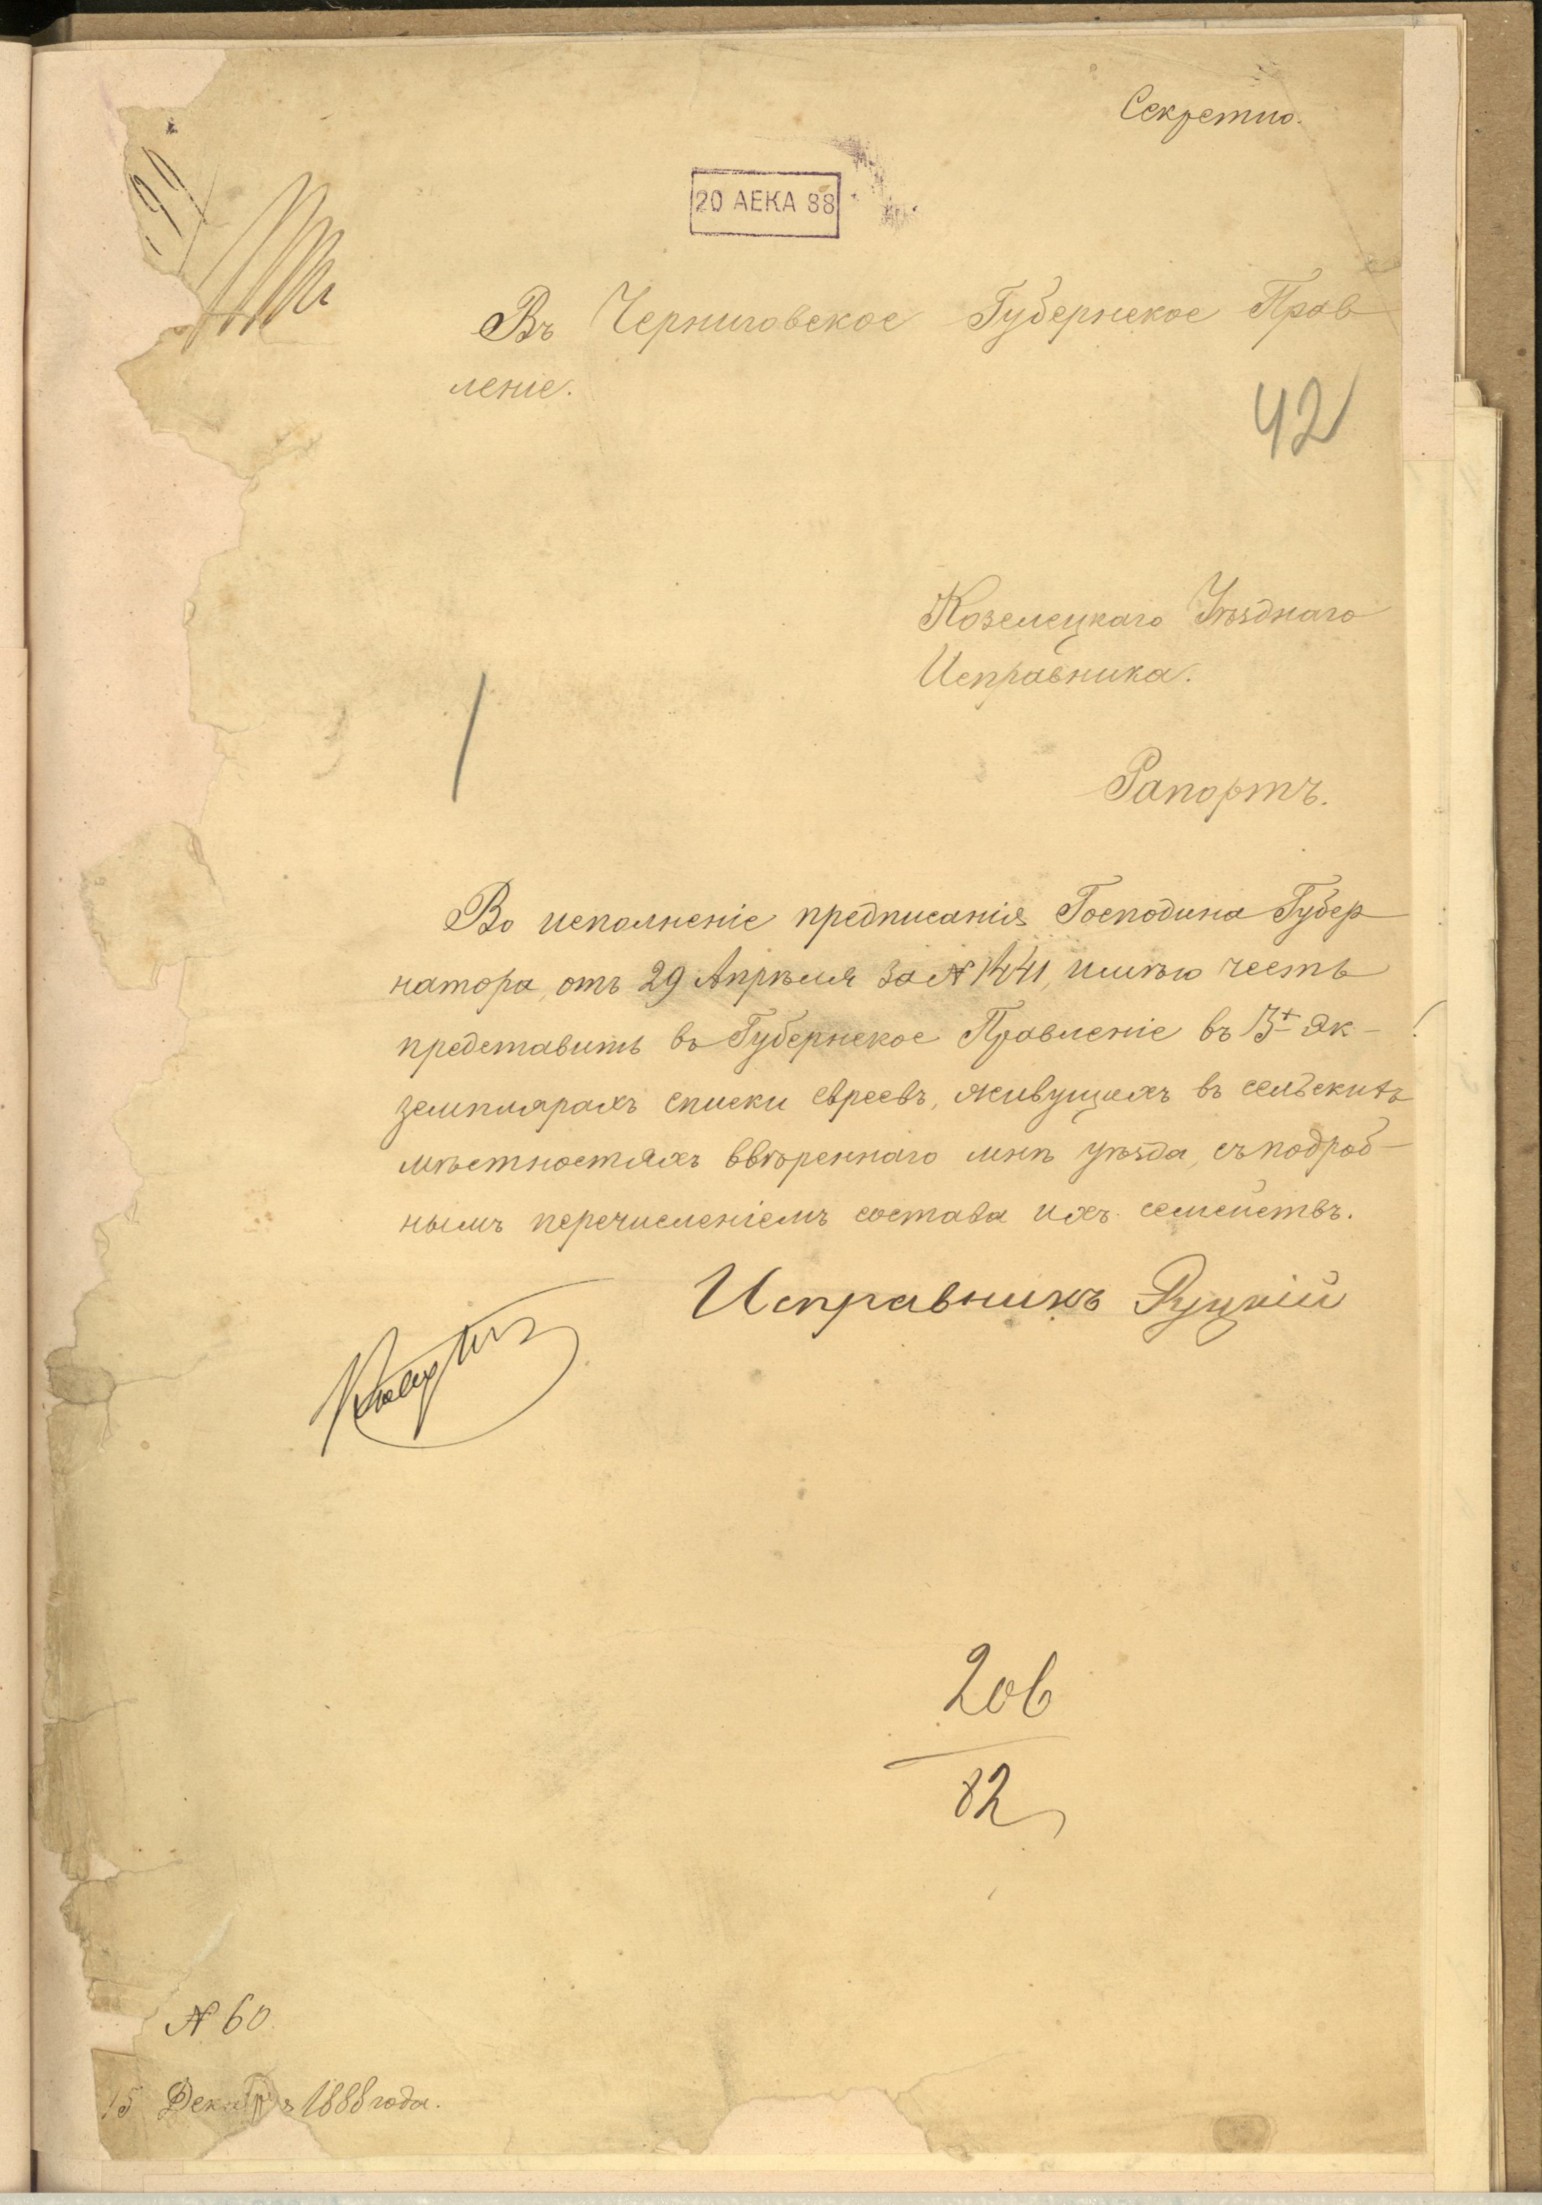 Секретно.
20 ДЕКА 88
Въ Черниговское Губернское Прав
ленiе.
42
Козелецкаго Уѣзднаго
Исправника.
Рапортъ.
Во исполненiе предписанiя Господина Губер
натора, отъ 29 Апрѣля за № 1441, имѣю честь
представить въ Губернское Правленiе въ 3х эк-
земплярахъ списки евреевъ, живущихъ въ сельскихъ
мѣстностяхъ ввѣреннаго мнѣ уѣзда, съ подроб-
нымъ перечисленiемъ состава ихъ семействъ.
Исправникъ Руцкiй
206
82
№ 60.
15 Декабря 1888 года.